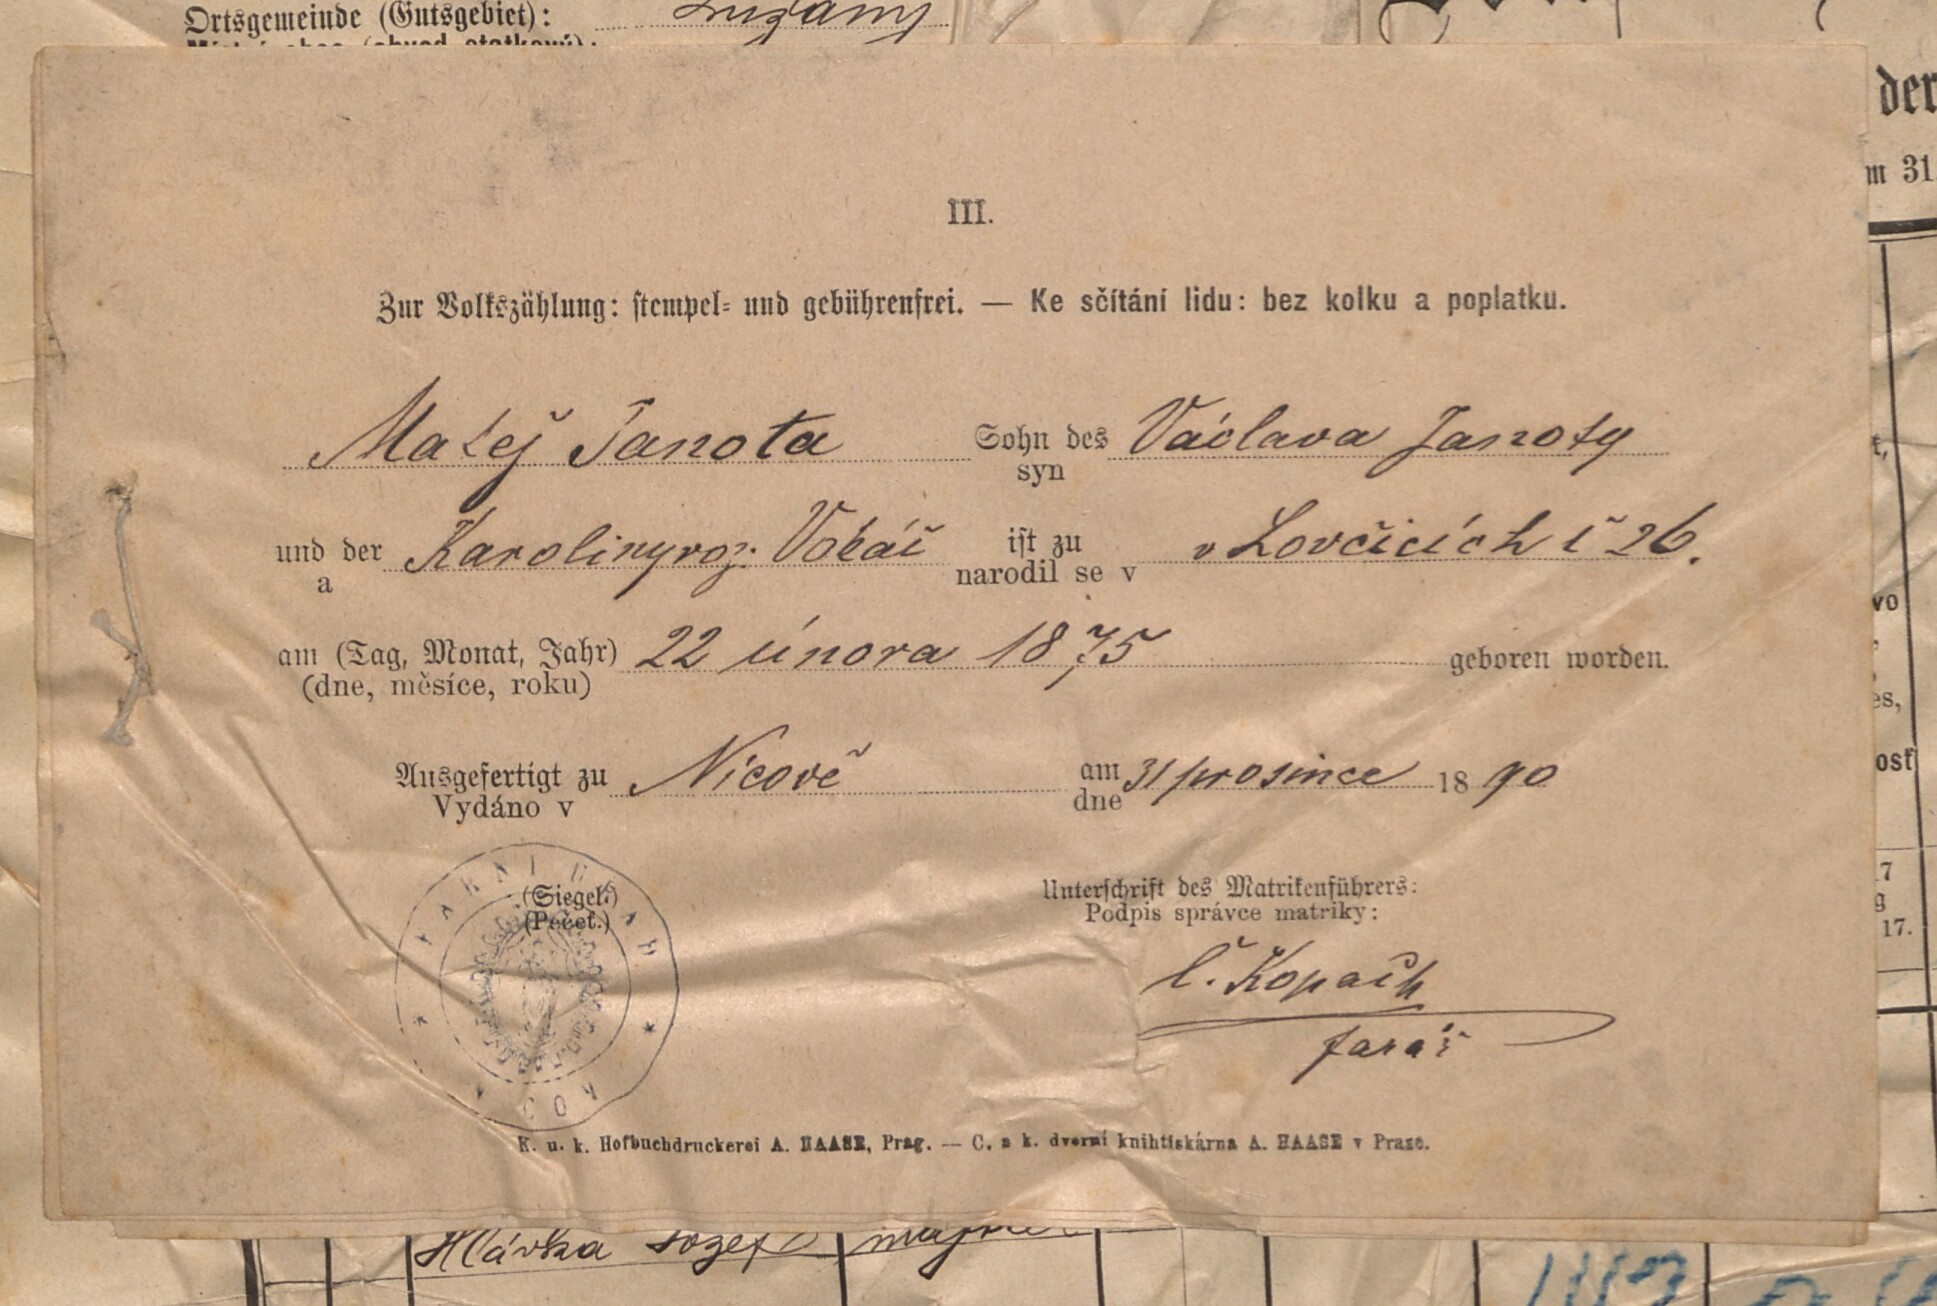 Ortsgemeinde (Gutsgebiet): Lužany
der
m 31.
III.
Zur Volkszählung: stempel- und gebührenfrei. — Ke sčítání lidu: bez kolku a poplatku.
Matej Janota Sohn des Václava Janoty
syn
und der Karoliny roz. ist zu v Lovčicích č 26.
a narodil se v
am (Tag, Monat, Jahr) 22 února 1875 geboren worden.
(dne, měsíce, roku)
Ausgefertigt zu Nicově am 31 prosince 1890
Vydáno v dne
(Siegel.)
(Pečeť.)
Unterschrift des Matrikenführers:
Podpis správce matriky:
farář
K. u. k. Hofbuchdruckerei A. HAASE, Prag. — C. a k. dvorní knihtiskárna A. HAASE v Praze.
17.
Hlávka Josef